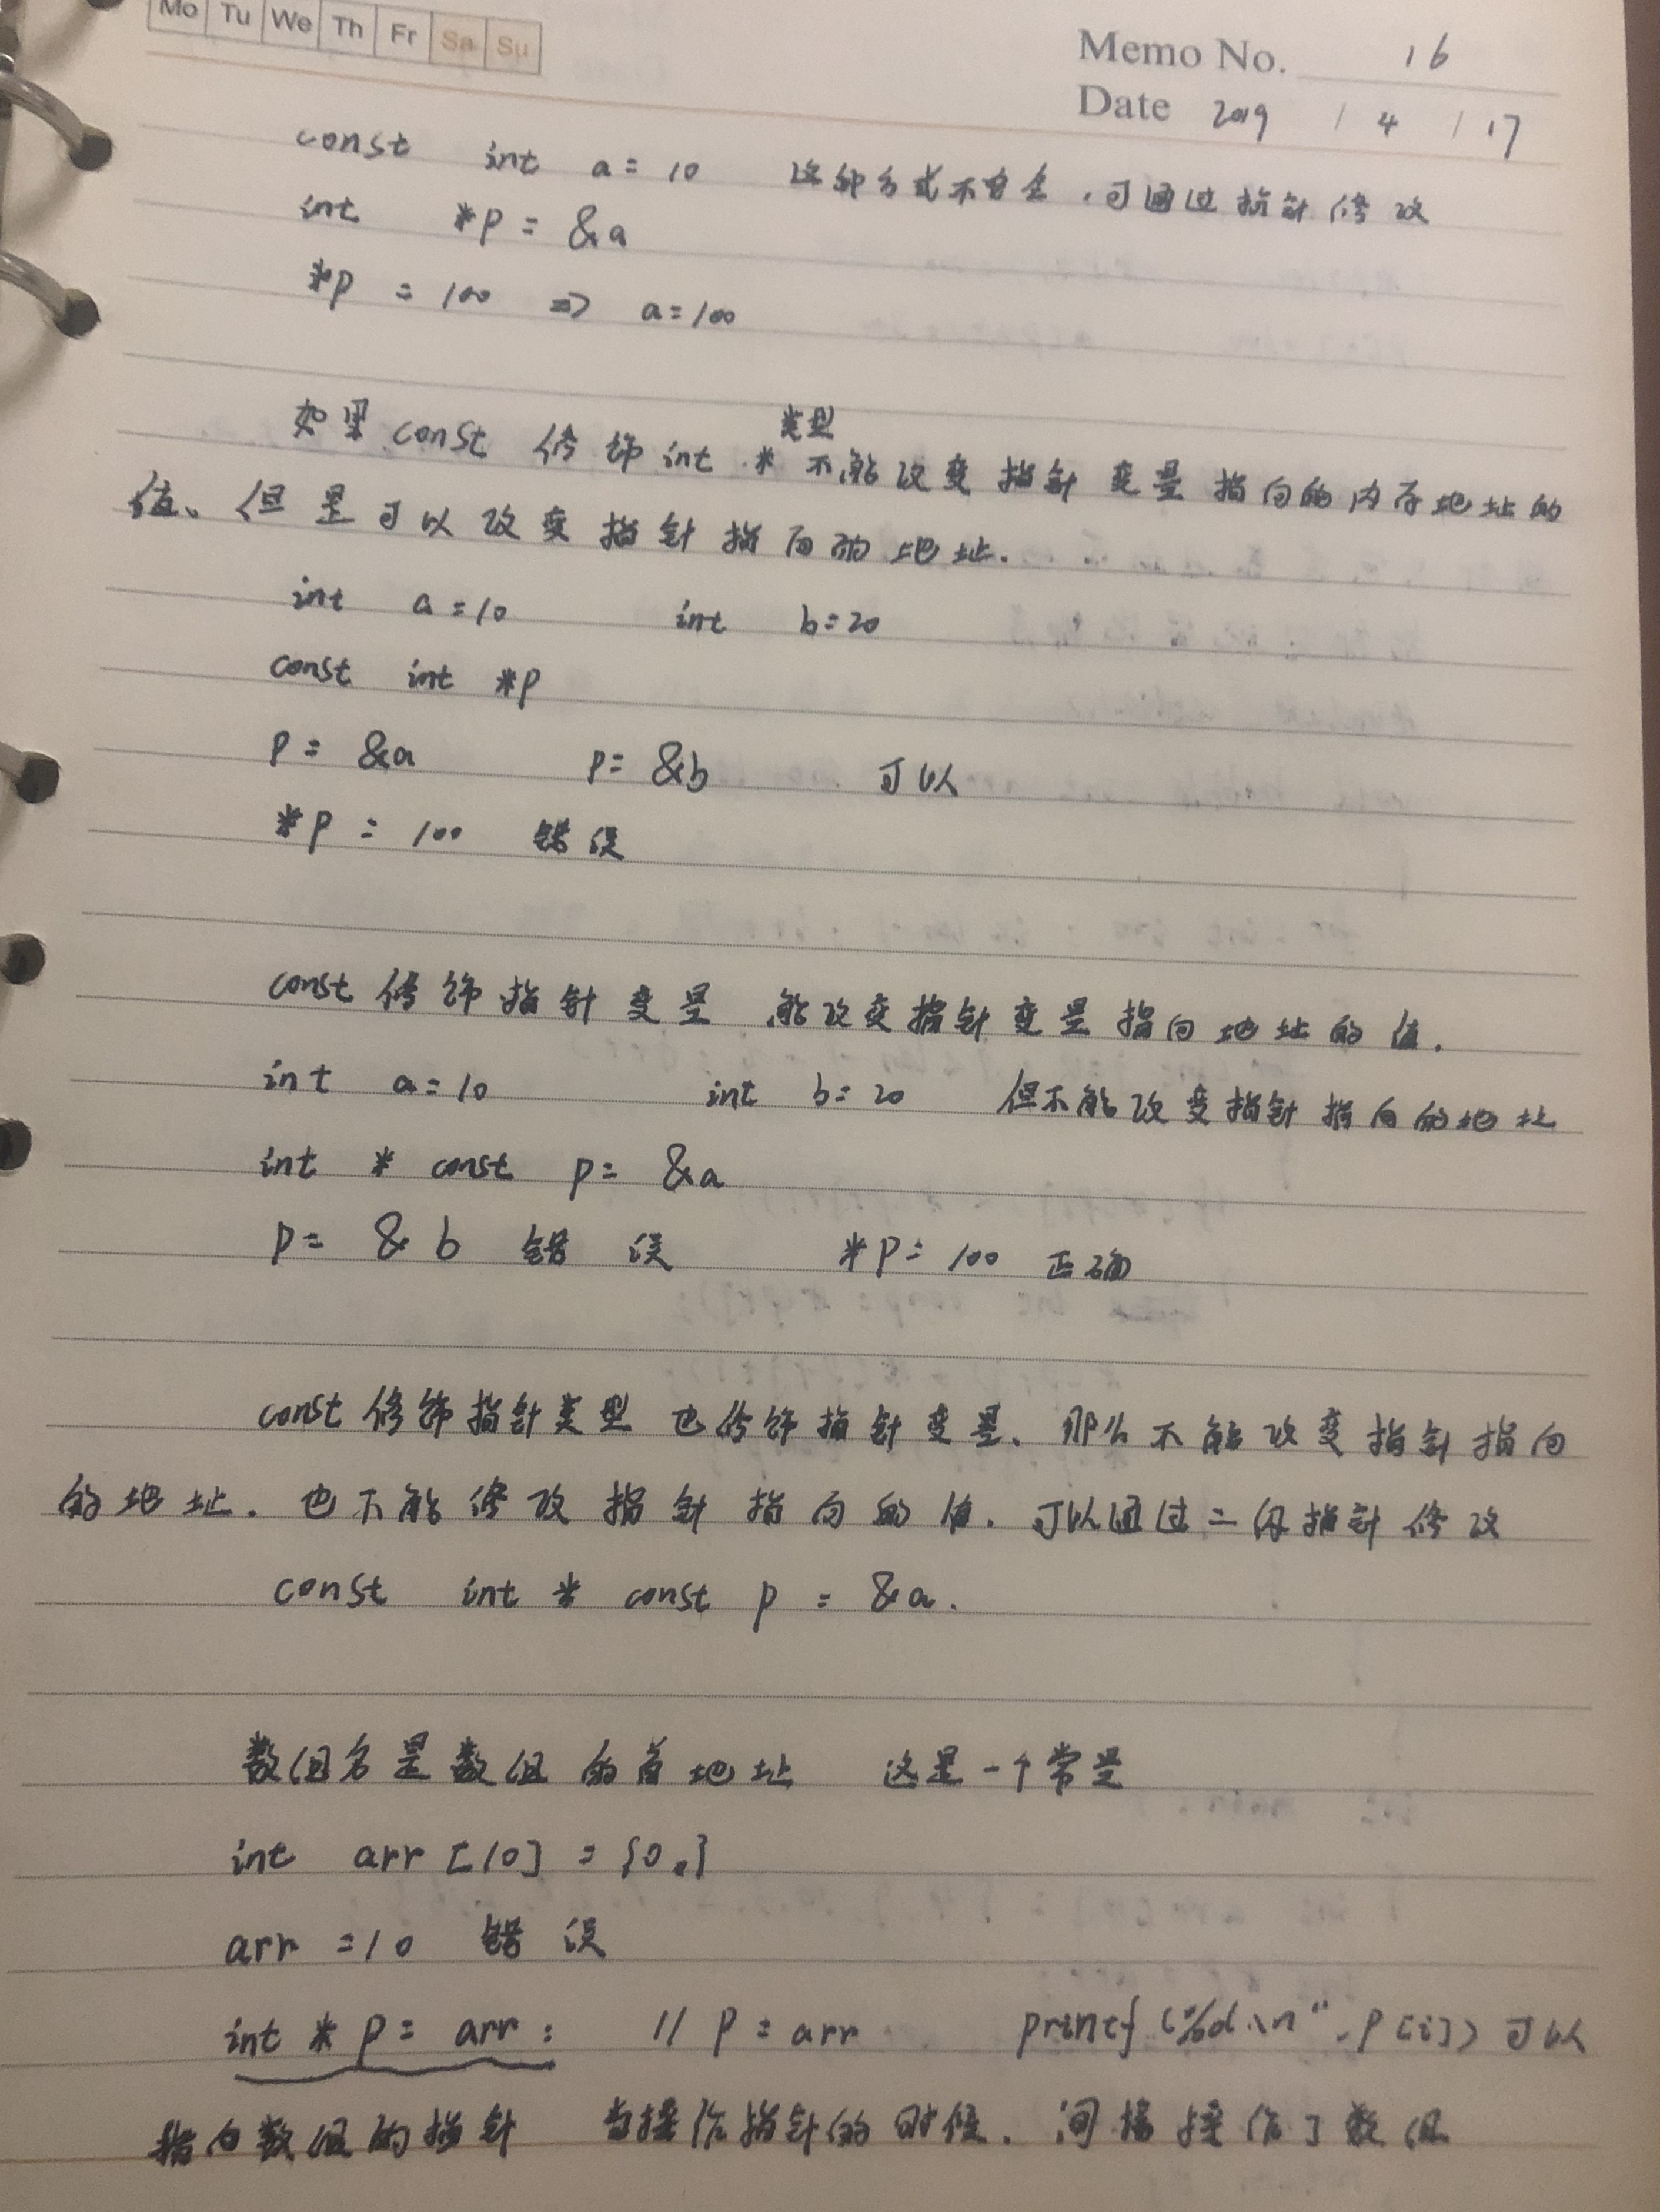 Mo Tu We Th Fr Sa Su
Memo No. 16
Date 2019 / 4 / 17
const int a = 10 这种方式不安全，可通过指针修改
int *p = &a
*p = 100 => a = 100
类型
如果 const 修饰 int * 不能改变指针变量指向的内存地址的
值、但是可以改变指针指向的地址.
int a = 10 int b = 20
const int *p
p = &a p = &b 可以
*p = 100 错误
const 修饰指针变量 能改变指针变量指向地址的值.
int a = 10 int b = 20 但不能改变指针指向的地址
int * const p = &a
p = & b 错误 *p = 100 正确
const 修饰指针类型 也修饰指针变量、那么不能改变指针指向
的地址. 也不能修改指针指向的值. 可以通过二级指针修改
const int * const p = &a.
数组名是数组的首地址 这是一个常量
int arr [10] = {0,}
arr = 10 错误
int * p = arr; // p = arr printf (%d\n", p[i]) 可以
指向数组的指针 当操作指针的时候、间接操作了数组